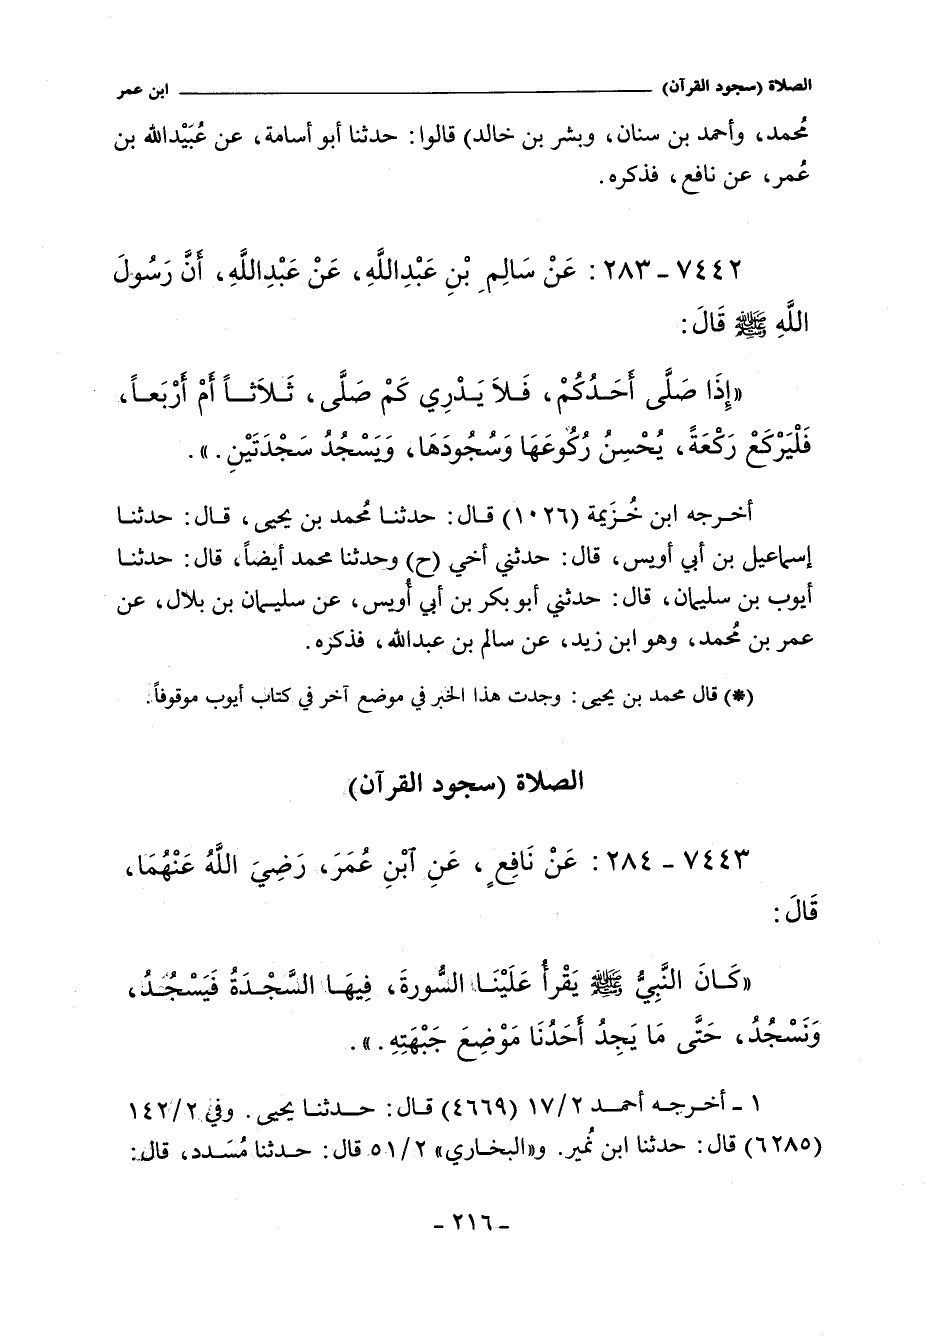 الصلاة (سجود القرآن) ابن عمر
مُحمد، وأحمد بن سنان، وبشر بن خالد) قالوا: حدثنا أبو أسامة، عن عُبَيْدالله بن
عُمر، عن نافع، فذكره.
٧٤٤٢ - ٢٨٣: عَنْ سَالِمِ بْنِ عَبْدِاللَّهِ، عَنْ عَبْدِاللَّهِ، أَنَّ رَسُولَ
اللَّهِ ﷺ قَالَ:
«إِذَا صَلَّى أَحَدُكُمْ، فَلاَ يَدْرِي كَمْ صَلَّى، ثَلاَثاً أَمْ أَرْبَعاً،
فَلْيَرْكَعْ رَكْعَةً، يُحْسِنُ رُكُوعَهَا وَسُجُودَهَا، وَيَسْجُدُ سَجْدَتَيْنِ.».
أخرجه ابن خُزَيمة (١٠٢٦) قال: حدثنا مُحمد بن يحيى، قال: حدثنا
إسماعيل بن أبي أويس، قال: حدثني أخي (ح) وحدثنا محمد أيضاً، قال: حدثنا
أيوب بن سليمان، قال: حدثني أبو بكر بن أبي أُويس، عن سليمان بن بلال، عن
عمر بن مُحمد، وهو ابن زيد، عن سالم بن عبدالله، فذكره.
(*) قال محمد بن يحيى: وجدت هذا الخبر في موضع آخر في كتاب أيوب موقوفاً.
الصلاة (سجود القرآن)
٧٤٤٣ - ٢٨٤: عَنْ نَافِعٍ، عَنِ آبْنِ عُمَرَ، رَضِيَ اللَّهُ عَنْهُمَا،
قَالَ:
«كَانَ النَّبِيُّ ﷺ يَقْرأُ عَلَيْنَا السُّورةَ، فِيهَا السَّجْدَةُ فَيَسْجُدُ،
وَنَسْجُدُ، حَتَّى مَا يَجِدُ أَحَدُنَا مَوْضِعَ جَبْهَتِهِ.».
١ - أخرجه أحمد ١٧/٢ (٤٦٦٩) قال: حدثنا يحيى. وفي ١٤٢/٢
(٦٢٨٥) قال: حدثنا ابن نُمير. و«البخاري» ٥١/٢ قال: حدثنا مُسَدد، قال:
- ٢١٦ -